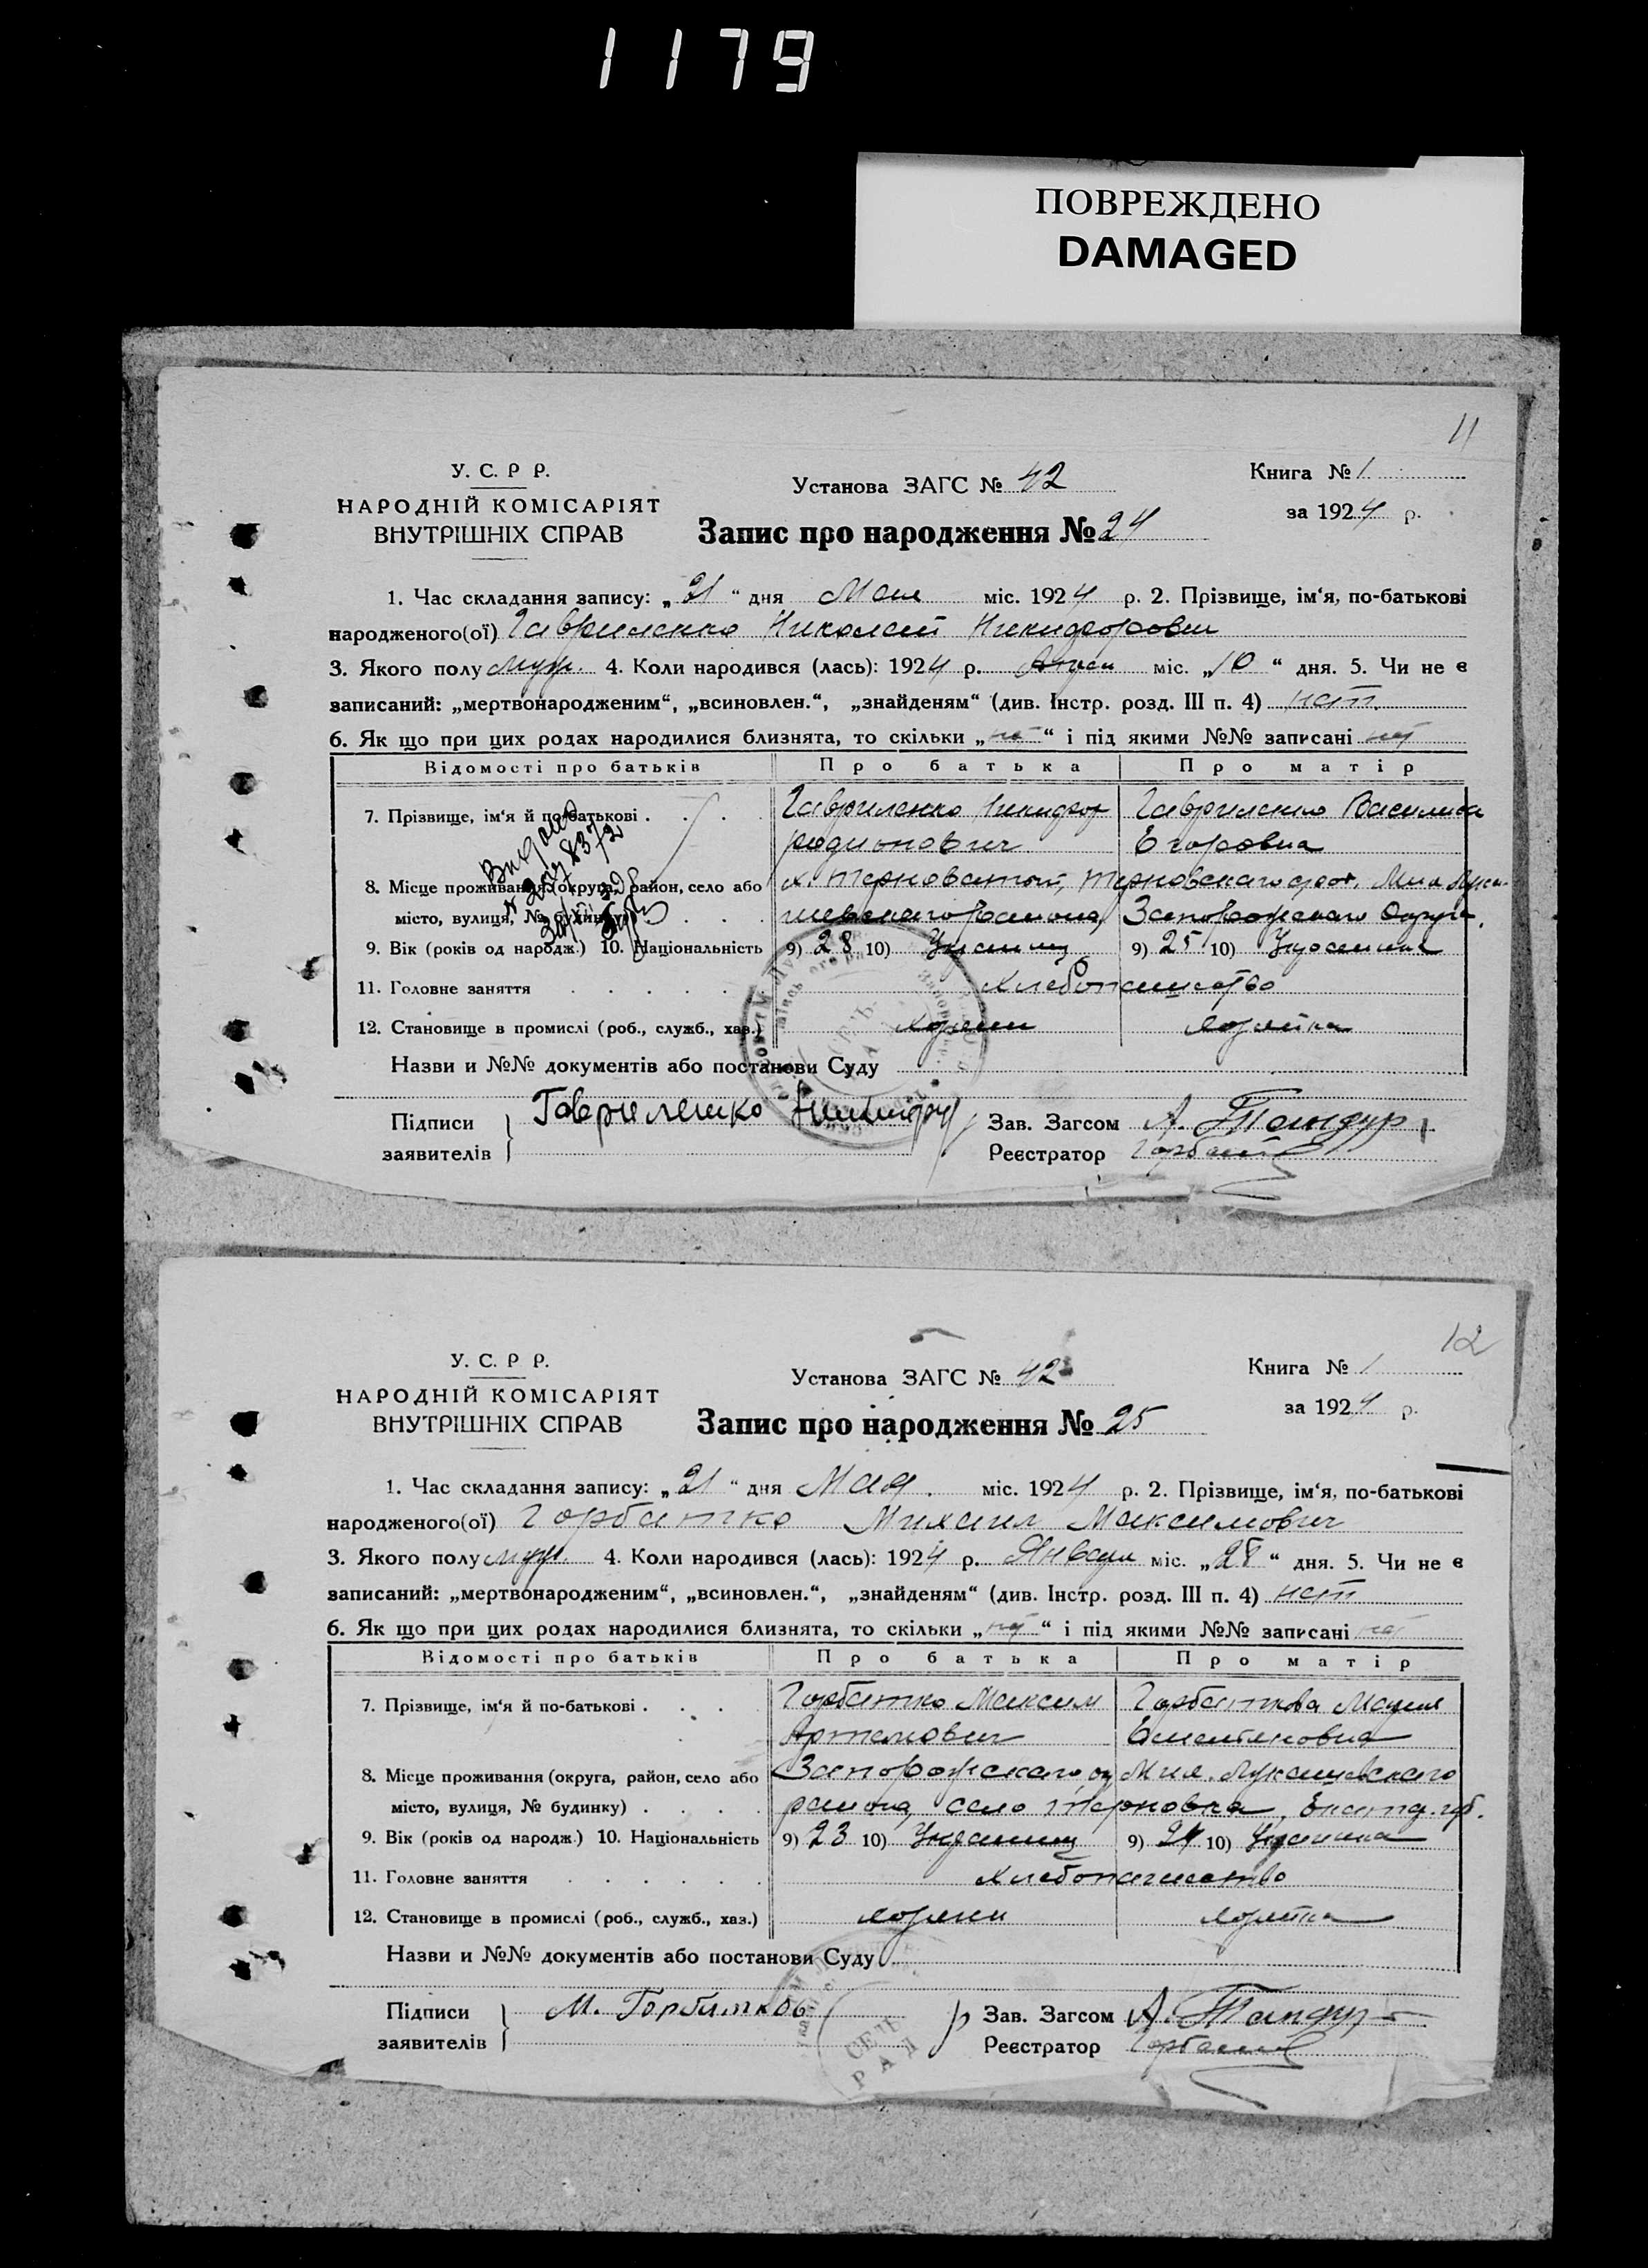 1179
ПОВРЕЖДЕНО
DAMAGED
11
У. С. Р Р.
НАРОДНІЙ КОМІСАРІЯТ
ВНУТРІШНІХ СПРАВ
Установа ЗАГС № 42
Книга № 1
за 1924 р.
Запис про народження № 24
1. Час складання запису: „21“ дня Мая міс. 1924 р. 2. Прізвище, ім‘я, по-батькові
народженого(ої) Гавриленко Николай Никифорович
3. Якого полу муж. 4. Коли народився (лась): 1924 р. міс. „10“ дня. 5. Чи не є
записаний: „мертвонародженим“, „всиновлен.“, „знайденям“ (див. Інстр. розд. III п. 4) нет.
6. Як що при цих родах народилися близнята, то скільки „нет“ і під якими №№ записані нет
Відомості про батьків Про батька Про матір
7. Прізвище, ім‘я й по-батькові . . . . Гавриленко Никифор Гавриленко Василиса
родионович Егоровна
8. Місце проживання (округа, район, село або х. Терноватый, Терновского Мих. Лука-
місто, вулиця, № будинку) . . . . шевского района, Запорожского Округа.
9. Вік (років од народж.) 10. Національність 9) 28 10) Украинец 9) 25 10) Украинка
11. Головне заняття . . . . . . Хлебопашество
12. Становище в промислі (роб., служб., хаз.) хозяин хозяйка
Назви и №№ документів або постанови Суду
Підписи заявителів Гавриленко Никифор
Зав. Загсом А. Тандур
Реєстратор
12
У. С. Р Р.
НАРОДНІЙ КОМІСАРІЯТ
ВНУТРІШНІХ СПРАВ
Установа ЗАГС № 42
Книга № 1
за 1924 р.
Запис про народження № 25
1. Час складання запису: „21“ дня Мая. міс. 1924 р. 2. Прізвище, ім‘я, по-батькові
народженого(ої) Горбатко Михаил Максимович
3. Якого полу муж. 4. Коли народився (лась): 1924 р. Января міс. „28“ дня. 5. Чи не є
записаний: „мертвонародженим“, „всиновлен.“, „знайденям“ (див. Інстр. розд. III п. 4) нет
6. Як що при цих родах народилися близнята, то скільки „нет“ і під якими №№ записані нет
Відомості про батьків Про батька Про матір
7. Прізвище, ім‘я й по-батькові . . . . Горбатко Максим Горбаткова Мария
Артемович Емельяновна
8. Місце проживання (округа, район, село або Запорожского Мих. Лукашевского
місто, вулиця, № будинку) . . . . района, село Терновка,
9. Вік (років од народж.) 10. Національність 9) 23 10) Украинец 9) 24 10) Украинка
11. Головне заняття . . . . . . Хлебопашество
12. Становище в промислі (роб., служб., хаз.) хозяин хозяйка
Назви и №№ документів або постанови Суду
СЕЛЬ
РАД
Підписи заявителів М. Горбатков
Зав. Загсом А. Тандур
Реєстратор